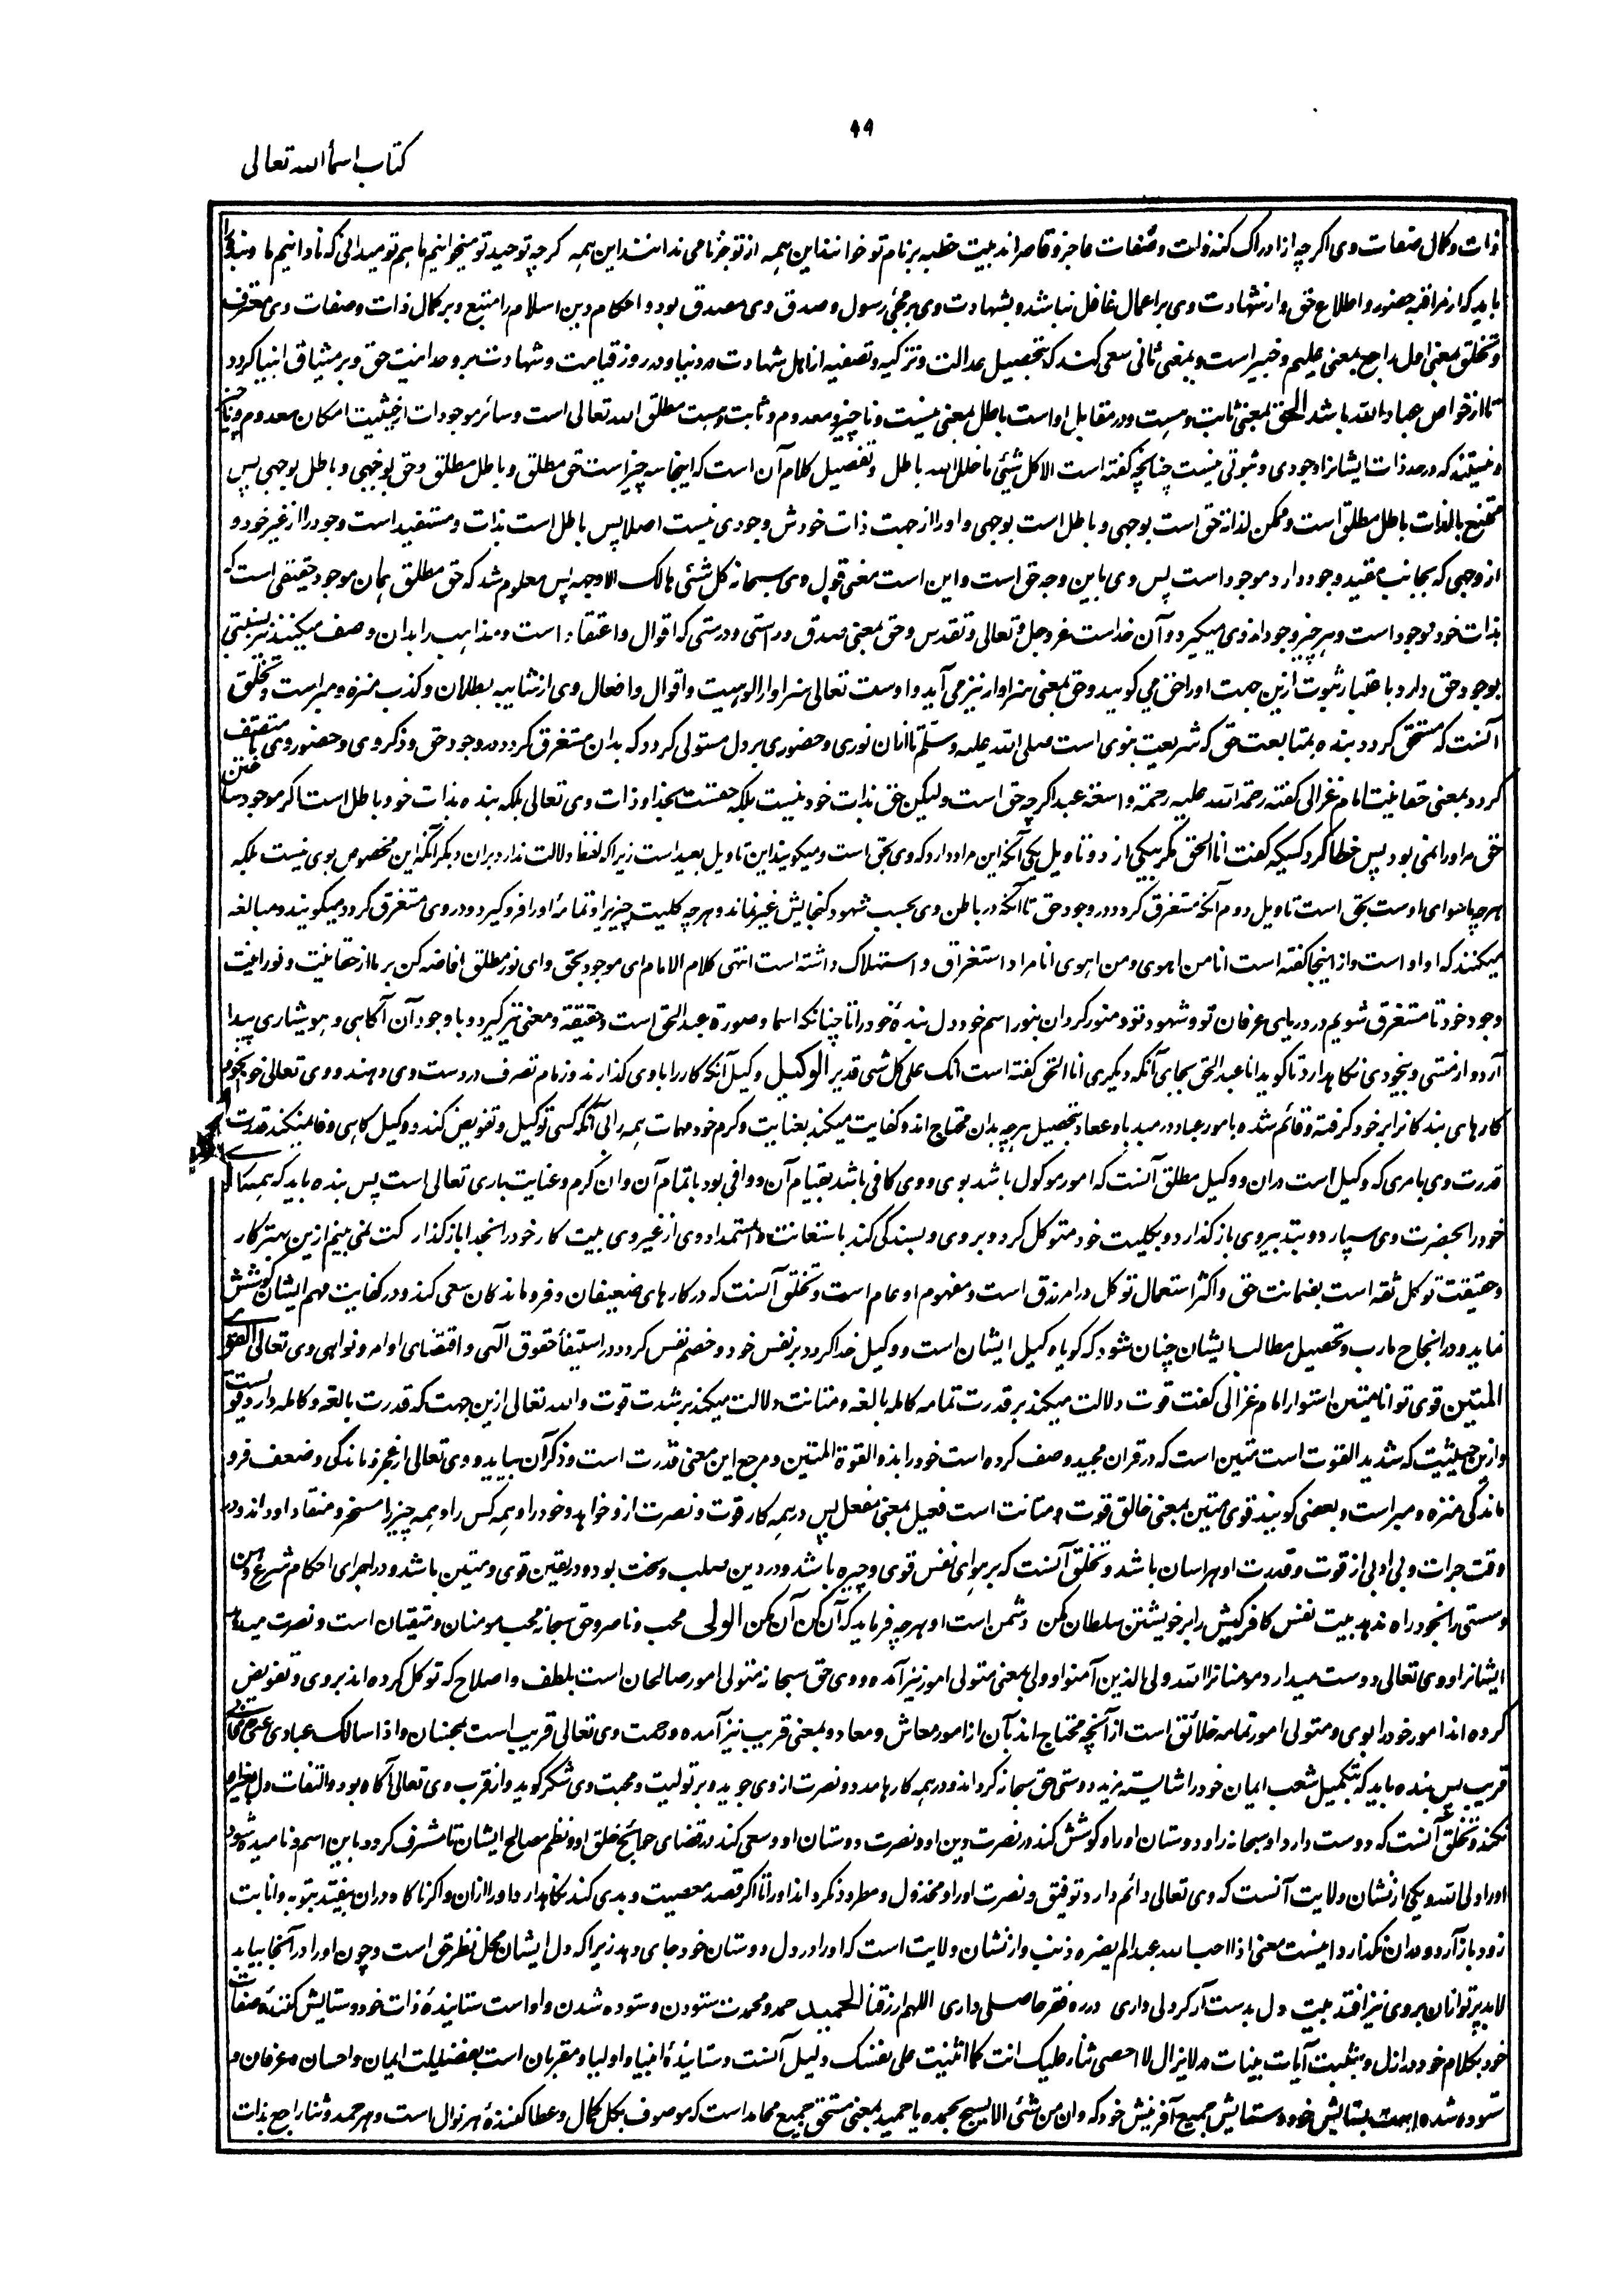 ۴۹
کتاب اسمأ الله تعالی
ذات و کمال صفات وی اگرچه از ادراک کنه ذات و صفات عاجز و قاصر اند بیت خطبه بر نام تو خوانند این همه از تو جز نامی ندانند این همه گرچه توحید تو میخوانیم ما هم تو میدانی که نادانیم ما و بنده را
باید که از مراقبه حضور و اطلاع حق و از شهادت وی بر اعمال غافل نباشد و بشهادت وی بر مجئ رسول و صدق وی مصدق بود و احکام دین اسلام را متبع و بر کمال ذات و صفات وی معترف
و تخلق بمعنی اول راجع بمعنی علیم و خبیر است و بمعنی ثانی سعی کند که بتحصیل عدالت و تزکیه و تصفیه از اهل شهادت در دنیا و در روز قیامت و شهادت بر وحدانیت حق و بر میثاق انبیا گردد
تا از خواص عباد الله باشد الحق بمعنی ثابت و هست و در مقابل او است باطل بمعنی نیست و ناچیز و معدوم و ثابت و هست مطلق الله تعالی است و سائر موجودات از حیثیت امکان معدوم و ناچیز
و نیستند که در حد ذات ایشانرا وجودی و ثبوتی نیست چنانچه گفته است الا کل شیئ ما خلا الله باطل و تفصیل کلام آن است که اینجا سه چیز است حق مطلق و باطل مطلق و حق بوجهی و باطل بوجهی پس
ممتنع بالذات باطل مطلق است و ممکن لذاته حق است بوجهی و باطل است بوجهی و او را از جهت ذات خودش وجودی نیست اصلا پس باطل است بذات و مستفید است وجود را از غیر خود و
از وجهی که بجانب مفید وجود دارد موجود است پس وی باین وجه حق است و این است معنی قول وی سبحانه کل شئی هالک الا وجهه پس معلوم شد که حق مطلق همان موجود حقیقی است که
بذات خود موجود است و هر چیز وجود از وی میگیرد و آن خداست عز و جل و تعالی و تقدس و حق بمعنی صدق و راستی و درستی که اقوال و اعتقاد است و مذاهب را بدان وصف میکنند نیز نسبتی
بوجود حق دارد باعتبار ثبوت ازین جهت او را حق می گویند و حق بمعنی سزاوار نیز می آید و اوست تعالی سزاوار الوهیت و اقوال و افعال وی از شائبه بطلان و کذب منزه و مبراست و تخلق
آنست که مستحق گردد بنده بمتابعت حق که شریعت نبوی است صلی الله علیه و سلم تا ازان نوری و حضوری بر دل مستولی گردد که بدان مستغرق گردد در وجود حق و ذکر وی و حضور وی تا متصف
گردد بمعنی حقانیت امام غزالی گفته رحمة الله علیه رحمة واسعة عبد اگرچه حق است ولیکن حق بذات خود نیست بلکه حقست بخدا و ذات وی تعالی بلکه بنده بذات خود باطل است اگر موجود ساختن
حق مر او را نمی بود پس خطا کرد کسیکه گفت انا الحق مگر بیکی از دو تاویل یکی آنکه این مراد دارد که وی بحق است و میگویند این تاویل بعید است زیرا که لفظ دلالت ندارد بران و دیگر آنکه این مخصوص بوی نیست بلکه
هرچه ماسوای اوست بحق است تاویل دوم آنکه مستغرق گردد در وجود حق تا آنکه در باطن وی بحسب شهود گنجایش غیر نماند و هرچه کلیت چیزیرا و تمامه او را فرو گیرد و در وی مستغرق گردد میگویند و مبالغه
میکنند که او او است و از اینجا گفته است انا من اهوی و من اهوی انا مراد استغراق و استهلاک داشته است انتهی کلام الامام ای موجود بحق و ای نور مطلق افاضه کن بر ما از حقانیت و نورانیت
وجود خود تا مستغرق شویم در دریای عرفان تو و شهود تو و منور گردان بنور اسم خود دل بنده خود را تا چنانکه اسما و صورة عبد الحق است حقیقة و معنی نیز گیرد و با وجود آن آگاهی و هوشیاری پیدا
آرد و از مستی و بیخودی نگاهدارد تا گوید انا عبد الحق بجای آنکه دیگری انا الحق گفته است انک علی کل شی قدیر الوکیل وکیل آنکه کار را با وی گذارند و زمام تصرف در دست وی دهند و وی تعالی خود بخود
کارهای بندگانرا بر خود گرفته و قائم شده بامور عباد در مبدا و معاد بتحصیل هرچه بدان محتاج اند و کفایت میکند بعنایت و کرم خود مهمات همه را بی آنکه کسی توکیل و تفویض کند و وکیل گاهی وفا نمیکند قدرت
قدرت وی بامری که وکیل است دران و وکیل مطلق آنست که امور موکول باشد بوی و وی کافی باشد بقیام آن و وافی بود باتمام آن و ان کرم و عنایت باری تعالی است پس بنده باید که همه کار
خود را بحضرت وی سپارد و بتدبیر وی بازگذارد و بکلیت خود متوکل گردد بر وی و بسندگی کند باستعانت و استمداد وی از غیر وی بیت کار خود را بخدا بازگذار کت نمی بینم ازین بهتر کار
و حقیقت توکل ثقه است بضمانت حق و اکثر استعمال توکل در امر رزق است و مفهوم او عام است و تخلق آنست که در کارهای ضعیفان و فروماندگان سعی کند و در کفایت مهم ایشان کوشش
نماید و در انجاح مارب و تحصیل مطالب ایشان چنان شود که گویا وکیل ایشان است و وکیل خدا گردد بر نفس خود و خصم نفس گردد در استیفأ حقوق الهی و اقتضای اوامر و نواهی وی تعالی القوی
المتین قوی توانا متین استوار امام غزالی گفت قوت دلالت میکند بر قدرت تمامه کامله بالغه و متانت دلالت میکند بر شدت قوت و الله تعالی ازین جهت که قدرت بالغه و کامله دارد قوی است
و ازین حیثیت که شدید القوت است متین است که در قران مجید وصف کرده است خود را بذو القوة المتین و مرجع این معنی قدرت است و ذکر آن بیاید و وی تعالی از عجز و ماندگی و ضعف فرو
ماندگی منزه و مبراست و بعضی گویند قوی متین بمعنی خالق قوت و متانت است فعیل بمعنی مفعل پس در همه کار قوت و نصرت ازو خواهد و خود را و همه کس را و همه چیز را مسخر و منقاد او داند و در
وقت جرات و بی ادبی از قوت و قدرت او هراسان باشد و تخلق آنست که بر هوای نفس قوی و چیره باشد و در دین صلب و سخت بود و در یقین قوی و متین باشد و در اجرای احکام شرع وهن
و سستی را بخود راه ندهد بیت نفس کافر کیش را بر خویشتن سلطان مکن دشمن است او هرچه فرماید که آن کن آن مکن الولی محب و ناصر و حق سبحانه محب مومنان و متقیان است و نصرت میدهد
ایشانرا و وی تعالی دوست میدارد مومنانرا الله ولی الذین آمنوا و ولی بمعنی متولی امور نیز آمده و وی حق سبحانه متولی امور صالحان است بلطف و اصلاح که توکل کرده اند بر وی و تفویض
کرده اند امور خود را بوی و متولی امور تمامه خلائق است از آنچه محتاج اند بآن از امور معاش و معاد و بمعنی قریب نیز آمده و رحمت وی تعالی قریب است بمحسنان و اذا سالک عبادی عنی فانی
قریب پس بنده باید که بتکمیل شعب ایمان خود را شایسته مزید دوستی حق سبحانه گرداند و در همه کارها مدد و نصرت از وی جوید و بر تولیت و محبت وی شکر گوید و از قرب وی تعالی آگاه بود و التفات دل بغیر او
نکند و تخلق آنست که دوست دارد او سبحانه را و دوستان او را و کوشش کند در نصرت دین او و نصرت دوستان او و سعی کند در قضای حوائج خلق او و نظم مصالح ایشان تا مشرف گردد باین اسم و نامیده شود
او را ولی الله و یکی از نشان ولایت آنست که وی تعالی دائم دارد توفیق و نصرت او را و مخذول و مطرود نگرداند او را تا اگر قصد معصیت و بدی کند نگاهدارد او را ازان و اگر ناگاه دران بیفتد بتوبه و انابت
زود باز آرد و بدان نگذارد اینست معنی اذا احب الله عبدا لم یضره ذنب و از نشان ولایت است که او را در دل دوستان خود جای دهد زیرا که دل ایشان محل نظر حق است و چون او را در آنجا بیابد
لابد پرتو ازان بر وی نیز افتد بیت دل بدست آر گر دلی داری در ره فقر حاصلی داری اللهم ارزقنا الحمید حمد و محمدت ستودن و ستوده شدن و او است ستاینده ذات خود و ستایش کننده صفات
خود بکلام خود در ازل و بتثبیت آیات بینات در لایزال لا احصی ثناء علیک انت کما اثنیت علی نفسک دلیل آنست و ستاینده انبیا و اولیا و مقربان است بفضیلت ایمان و احسان و عرفان و
ستوده شده است بستایش خود و ستایش جمیع آفرینش خود که و ان من شئی الا یسبح بحمده یا حمید بمعنی مستحق جمیع محامد است که موصوف بکل کمال و عطا کننده هر نوال است و هر حمد و ثنا راجع بذات